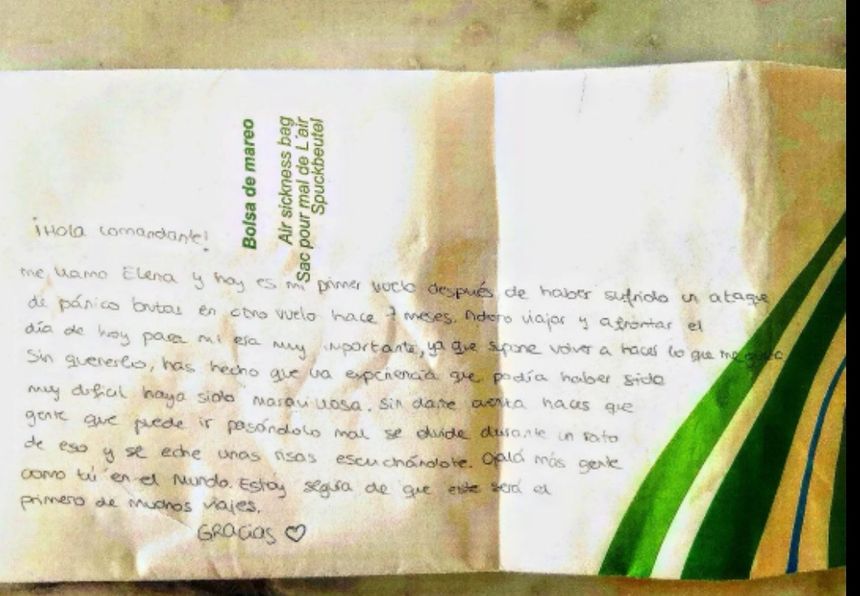 Bolsa de mareo
Air sickness bag
Sac pour mal de L'air
Spuckbeutel
¡Hola comandante!
me llamo Elena y hoy es mi primer vuelo después de haber sufrido un ataque
de pánico brutal en otro vuelo hace 7 meses. Adoro viajar y afrontar el
día de hoy para mi era muy importante, ya que supone volver a hacer lo que me gusta
Sin quererlo, has hecho que una experiencia que podía haber sido
muy difícil haya sido maravillosa. Sin darte cuenta haces que
gente que puede ir pasándolo mal se olvide durante un rato
de eso y se eche unas risas escuchándote. Ojalá más gente
como tú en el mundo. Estoy segura de que este será el
primero de muchos viajes.
GRACIAS ♡